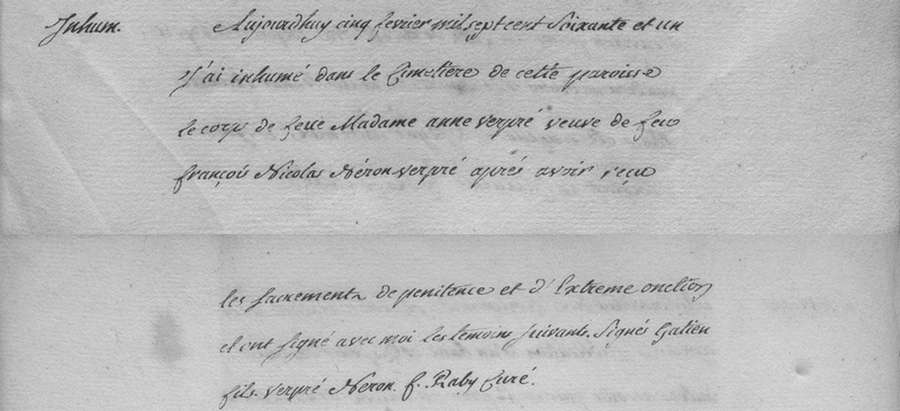 Inhum. Aujourdhuy cinq fevrier mil sept cent Soixante et un
J'ai inhumé dans le Cimetiere de cette paroisse
le corps de feue Madame anne verpré veuve de feu
françois Nicolas Néron verpré aprés avoir reçu
les sacrements de penitence et d'Extreme onction
et ont signé avec moi les temoins suivants. Signés Gatien
fils. verpré Neron. f. Raby Curé.